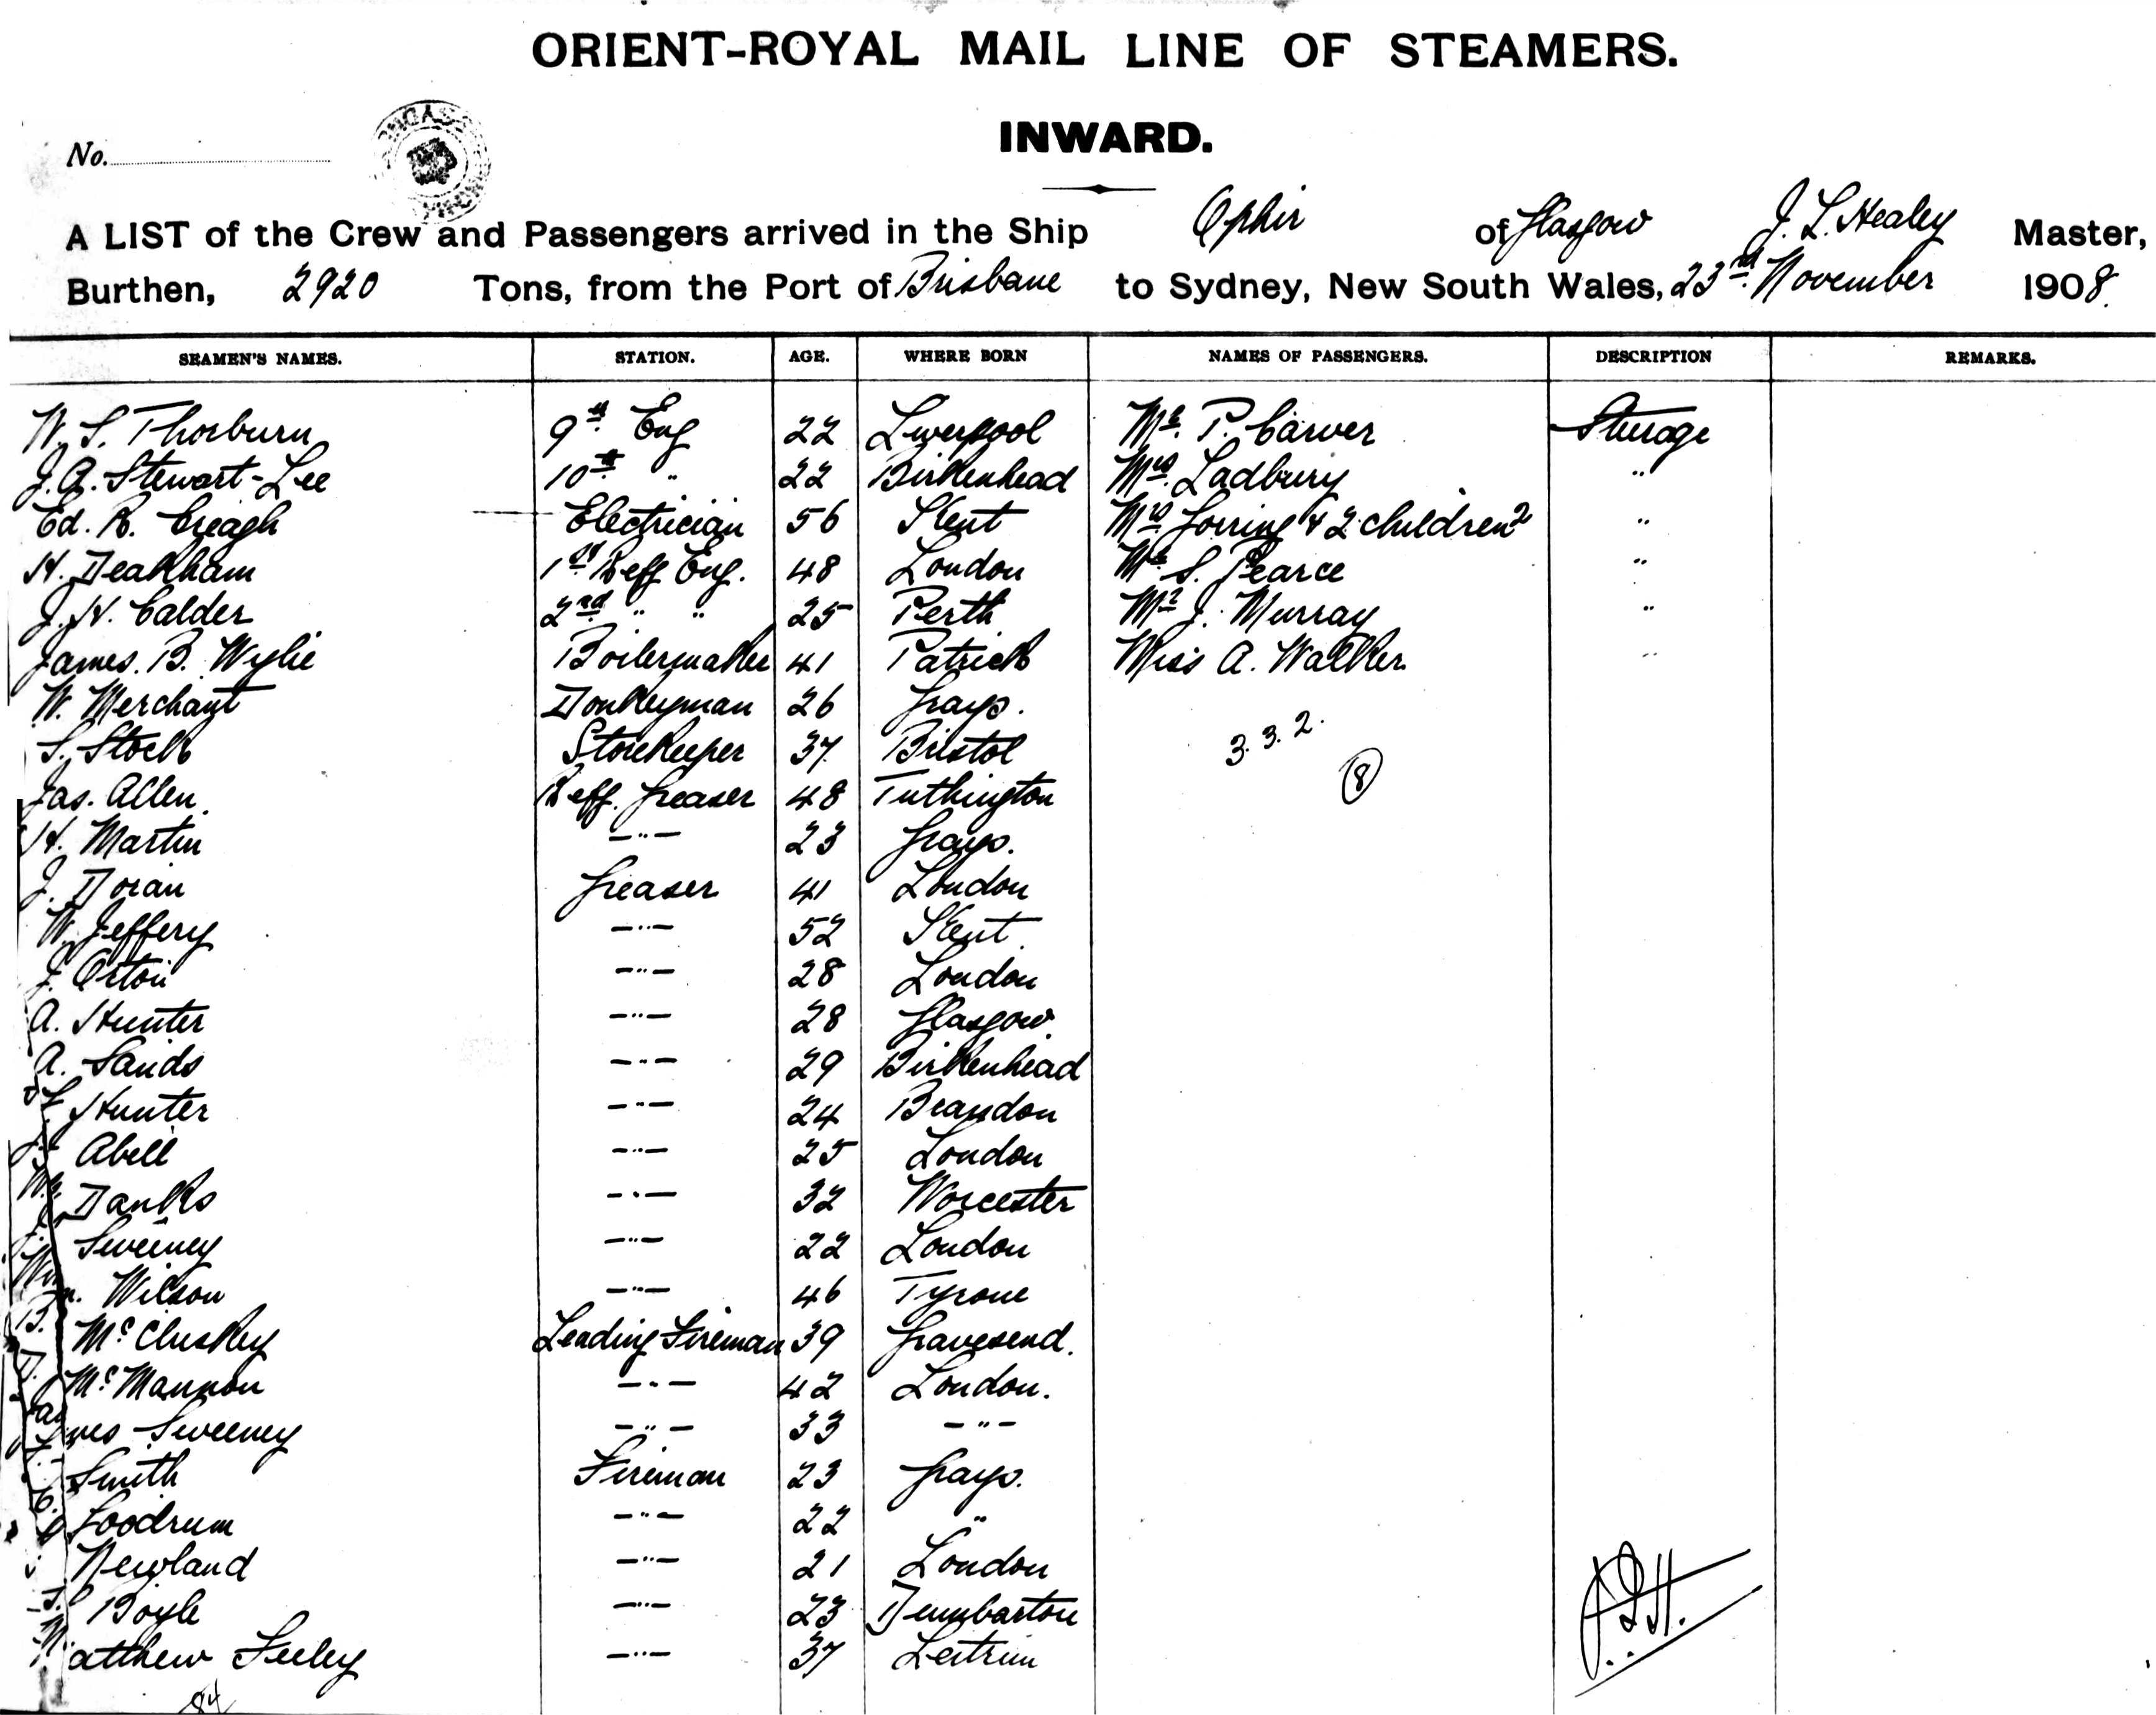 ORIENT-ROYAL MAIL LINE OF STEAMERS.
INWARD.
No.
A LIST of the Crew and Passengers arrived in the Ship Ophir of Glasgow J. L. Healey Master,
Burthen, 2920 Tons, from the Port of Brisbane to Sydney, New South Wales, 23rd November 1908.
SEAMEN'S NAMES. STATION. AGE. WHERE BORN NAMES OF PASSENGERS. DESCRIPTION REMARKS.
W. S. Thorburn 9th Eng 22 Liverpool Mr. P. Carver Steerage
J. A. Stewart-Lee 10th " 22 Birkenhead Mrs. Ladbury "
Ed. R. Creagh Electrician 56 Kent Mrs. Goring & 2 children 2 "
H. Deakham 1st Reff Eng. 48 London Mr. S. Pearce "
J. H. Calder 2nd " " 25 Perth Mr. J. Murray "
James. B. Wylie Boilermaker 41 Patrick Miss A. Walker "
W. Merchant Donkeyman 26 Grays.
S. Stock Storekeeper 37 Bristol 3. 3. 2.
Jas. Allen. Reff. Greaser 48 Tuthington 8
H. Martin —"— 23 Grays.
J. Doran Greaser 41 London
W. Jeffery —"— 52 Kent
J. Orton —"— 28 London
A. Hunter —"— 28 Glasgow
A. Sands —"— 29 Birkenhead
Hunter —"— 24 Brandon
Abell —"— 25 London
Danks —"— 32 Worcester
Sweeney —"— 22 London
Wm. Wilson —"— 46 Tyrone
B. McCluskey Leading Fireman 39 Gravesend.
D. McMannon —"— 42 London.
James Sweeney —"— 33 —"—
Smith Fireman 23 Grays.
Goodrum —"— 22 "
Newland —"— 21 London
Boyle —"— 23 Dumbarton
Matthew Feeley —"— 37 Leitrim
J.L.H.
84